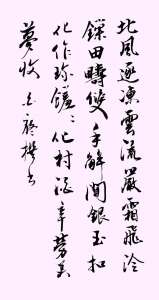 北風逐凍雲流嚴霜飛冷
鏁田疇雙手解開銀玉扣
化作珍饈化村酒辛勞美
夢收